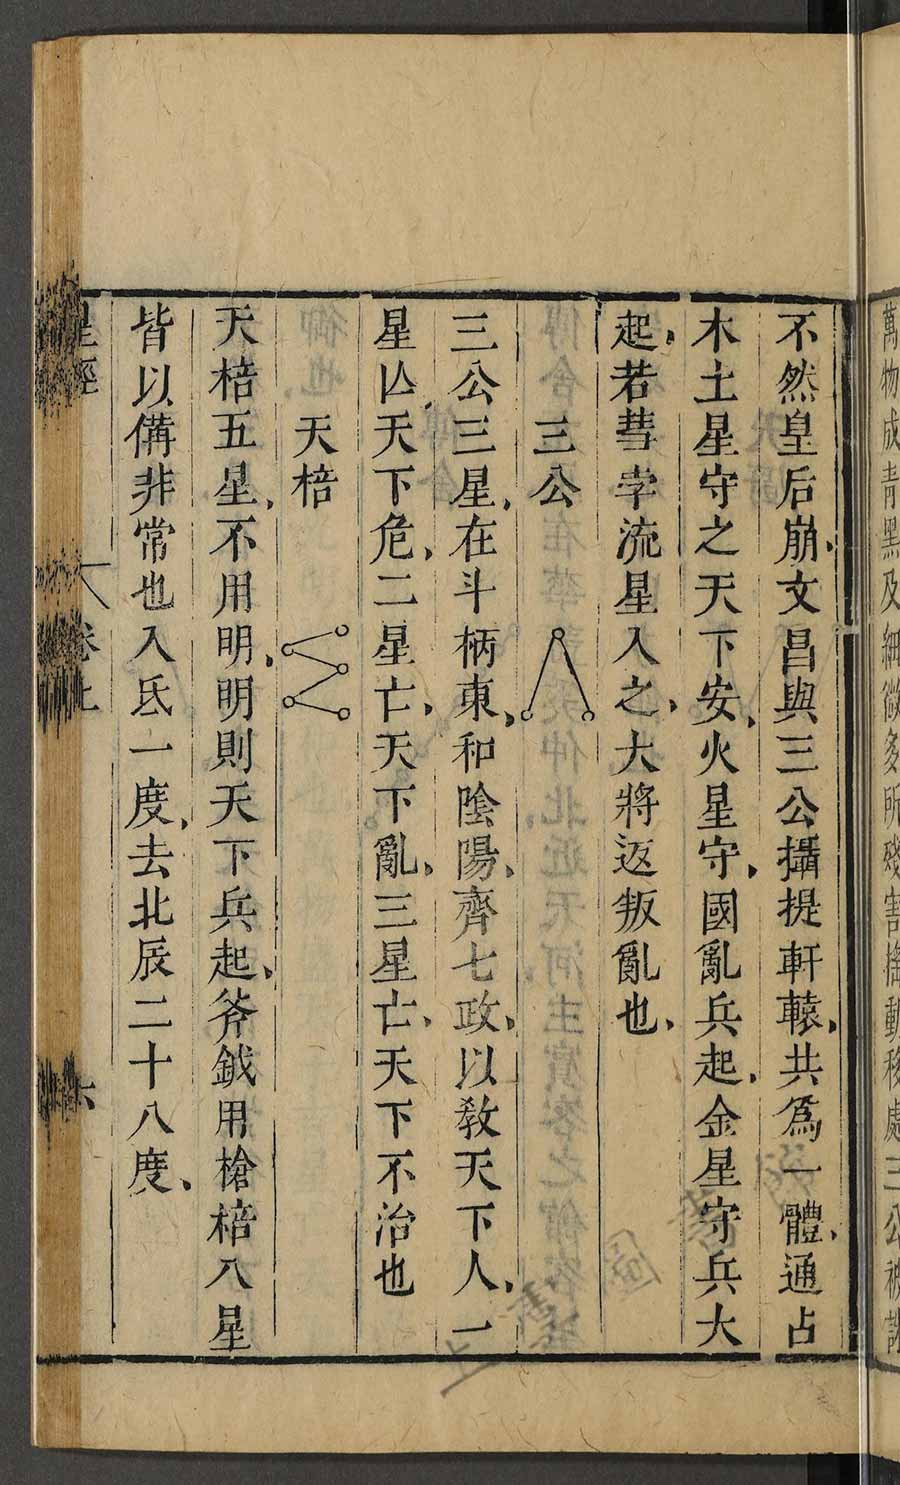 萬物成青黑及細微多所殘害搖動移處三公被誅
不然皇后崩、文昌與三公攝提軒轅、共爲一體、通占
木土星守之天下安、火星守、國亂兵起、金星守兵大
起、若彗孛流星入之、大將返叛亂也、
三公
三公三星、在斗柄東、和陰陽、齊七政、以教天下人、一
星亾天下危、二星亡、天下亂、三星亡、天下不治也
天棓
天棓五星、不用明、明則天下兵起、斧鉞用槍棓八星
皆以備非常也入氐一度、去北辰二十八度、
星經 卷上 六